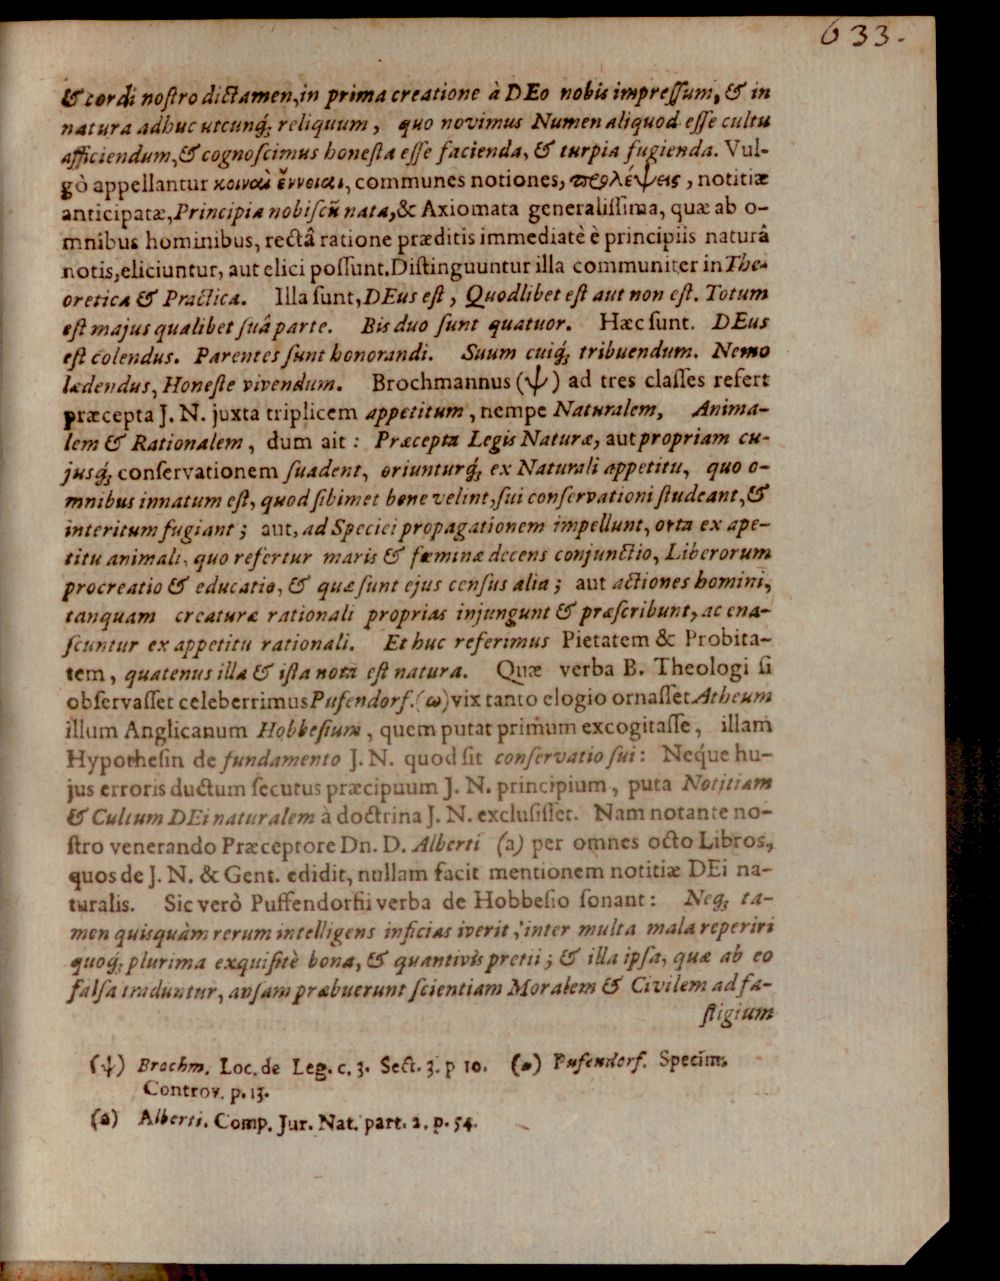 633.
& cordi noſtro dictamen, in prima creatione à DEo nobis impreſſum, & in
natura adhuc utcunq; reliquum, quo novimus Numen aliquod eſſe cultu
afficiendum, & cognoſcimus honeſta eſſe facienda, & turpia fugienda. Vul-
gò appellantur κοιναὶ ἔννοιαι, communes notiones, προλέψεις, notitiæ
anticipatæ, Principia nobiſcũ nata, & Axiomata generaliſſima, quæ ab o-
mnibus hominibus, rectâ ratione præditis immediatè è principiis naturâ
notis, eliciuntur, aut elici poſſunt. Diſtinguuntur illa communiter in The-
oretica & Practica. Illa ſunt, DEus eſt, Quodlibet eſt aut non eſt. Totum
eſt majus qualibet ſuâ parte. Bis duo ſunt quatuor. Hæc ſunt. DEus
eſt colendus. Parentes ſunt honorandi. Suum cuiq; tribuendum. Nemo
lædendus, Honeſte vivendum. Brochmannus (ψ) ad tres claſſes refert
præcepta J. N. juxta triplicem appetitum, nempe Naturalem, Anima-
lem & Rationalem, dum ait: Præcepta Legis Naturæ, aut propriam cu-
jusq; conſervationem ſuadent, oriunturq; ex Naturali appetitu, quo o-
mnibus innatum eſt, quod ſibimet bene velint, ſui conſervationi ſtudeant, &
interitum fugiant; aut, ad Speciei propagationem impellunt, orta ex ape-
titu animali, quo refertur maris & fœminæ decens conjunctio, Liberorum
procreatio & educatio, & quæ ſunt ejus cenſus alia; aut actiones homini,
tanquam creaturæ rationali proprias injungunt & præſcribunt, ac ena-
ſcuntur ex appetitu rationali. Et huc referimus Pietatem & Probita-
tem, quatenus illa & iſta nota eſt natura. Quæ verba B. Theologi ſi
obſervaſſet celeberrimus Pufendorf. (ω) vix tanto elogio ornaſſet Atheum
illum Anglicanum Hobbeſium, quem putat primum excogitaſſe, illam
Hypotheſin de fundamento J. N. quod ſit conſervatio ſui: Neque hu-
jus erroris ductum ſecutus præcipuum J. N. principium, puta Notitiam
& Cultum DEi naturalem à doctrina J. N. excluſiſſet. Nam notante no-
ſtro venerando Præceptore Dn. D. Alberti (a) per omnes octo Libros,
quos de J. N. & Gent. edidit, nullam facit mentionem notitiæ DEi na-
turalis. Sic verò Puffendorfii verba de Hobbeſio ſonant: Neq; ta-
men quisquàm rerum intelligens inficias iverit, inter multa mala reperiri
quoq; plurima exquiſitè bona, & quantivis pretii; & illa ipſa, quæ ab eo
falſa traduntur, anſam præbuerunt ſcientiam Moralem & Civilem ad fa-
ſtigium
(ψ) Brochm. Loc. de Leg. c. 3. Sect. 3. p 10. (ω) Pufendorf. Specim.
Controv. p. 13.
(a) Alberti. Comp. Jur. Nat. part. 2. p. 54.